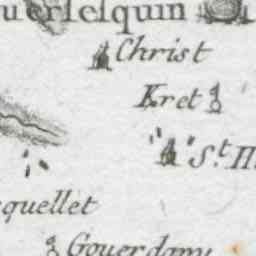 uerlesquin
Christ
Kret
St. H
quellet
Gouerdany